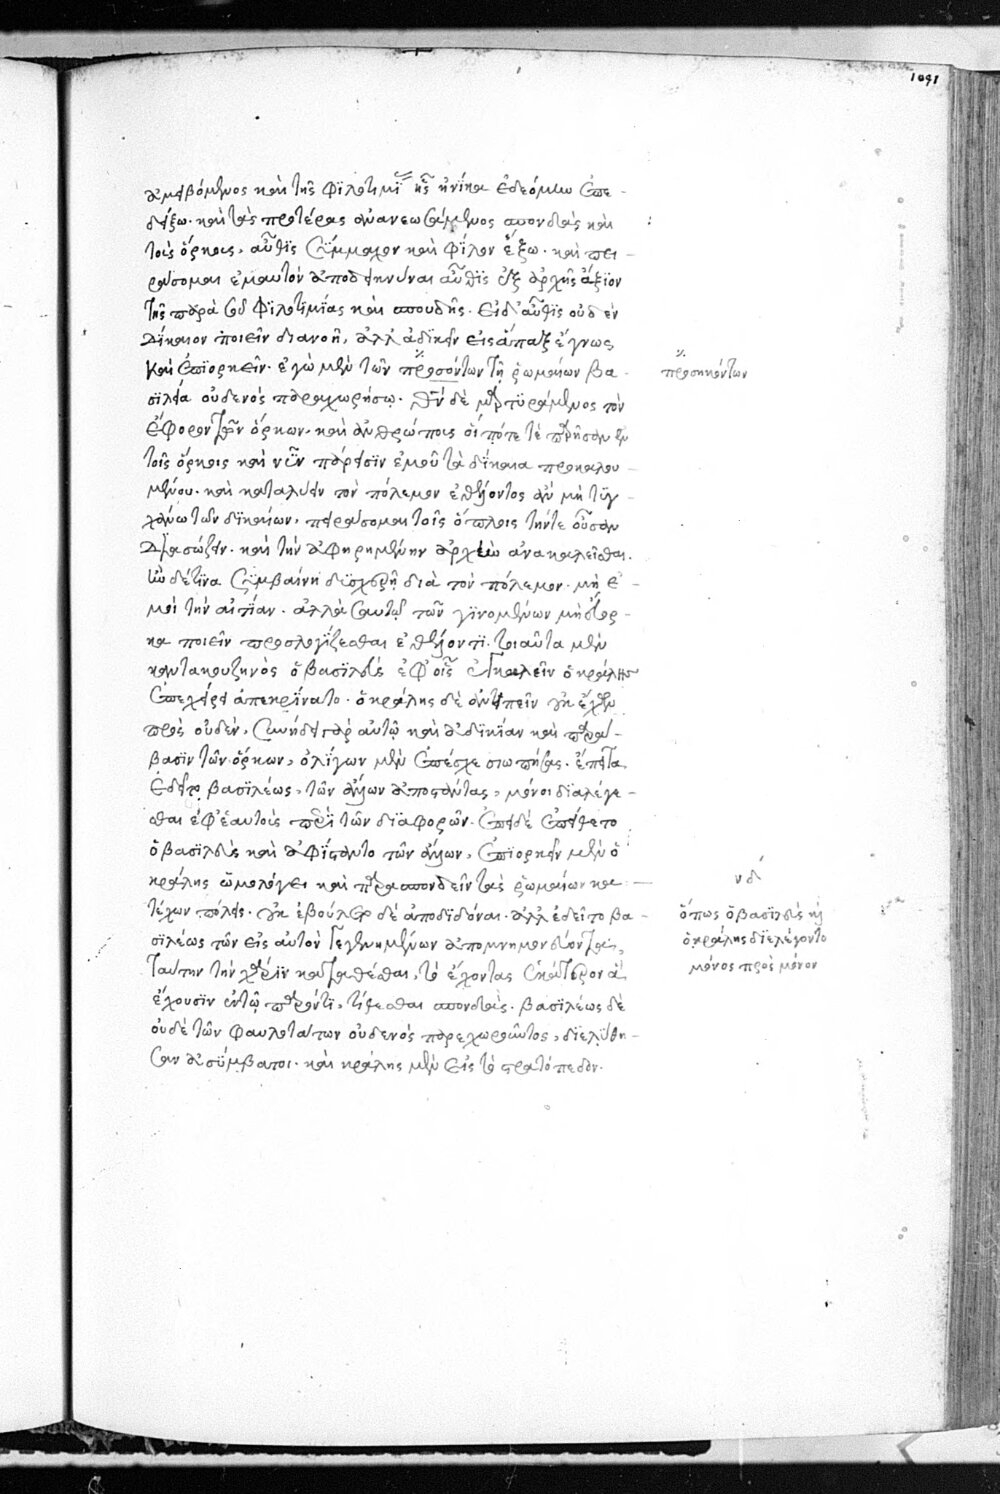 1091
ἀμειβόμενος καὶ τῆς φιλοτιμίας ἧς ἡνίκα ἐδεόμην ἐπε-
δείξω. καὶ τὰς προτέρας ἀνανεωσάμενος σπονδὰς καὶ
τοὺς ὅρκους, αὖθις σύμμαχον καὶ φίλον ἕξω. καὶ πει-
ράσομαι ἐμαυτὸν ἀποδεικνύναι αὖθις ἐξ ἀρχῆς ἄξιον
τῆς παρὰ σοῦ φιλοτιμίας καὶ σπουδῆς. εἰ δ' αὖθις οὐδὲν
δίκαιον ποιεῖν διανοῇ, ἀλλ' ἀδικεῖν εἰς ἅπαξ ἔγνως
καὶ ἐπιορκεῖν. ἐγὼ μὲν τῶν προσόντων τῇ ῥωμαίων βα-
σιλείᾳ οὐδενὸς παραχωρήσω. θεὸν δὲ μαρτυράμενος τὸν
ἔφορον τῶν ὅρκων, καὶ ἀνθρώπους οἵ ποτε παρῆσαν ἐν
τοῖς ὅρκοις καὶ νῦν πάρεισιν ἐμοῦ τὰ δίκαια προκαλου-
μένου. καὶ καταλύειν τὸν πόλεμον ἐθέλοντος ἂν μὴ τυγ-
χάνω τῶν δικαίων, πειράσομαι τοῖς ὅπλοις τήν τε οὖσαν
διασώζειν. καὶ τὴν ἀφῃρημένην ἀρχὴν ἀνακαλεῖσθαι.
ἢν δέ τινα συμβαίνῃ δυσχερῆ διὰ τὸν πόλεμον. μὴ ἐ-
μοὶ τὴν αἰτίαν. ἀλλὰ σαυτῷ τῶν γινομένων μὴ εὔορ-
κα ποιεῖν προσλογίζεσθαι ἐθέλοντι. τοιαῦτα μὲν
καντακουζηνὸς ὁ βασιλεὺς ἐφ' οἷς ἐγκαλεῖν ὁ κράλης
ἐπεχείρει ἀπεκρίνατο. ὁ κράλης δὲ ἀντειπεῖν οὐκ ἔχων
πρὸς οὐδέν, συνῄδει γὰρ αὐτῷ καὶ ἀδικίαν καὶ παρά-
βασιν τῶν ὅρκων, ὀλίγον μὲν ἐπέσχε σιωπήσας. ἔπειτα
ἐδεῖτο βασιλέως, τῶν ἄλλων ἀποστάντας, μόνοι διαλέγε-
σθαι ἐφ' ἑαυτοῖς περὶ τῶν διαφορῶν. ἐπεὶ δὲ ἐπείθετο
ὁ βασιλεὺς καὶ ἀφίσταντο τῶν ἄλλων, ἐπιορκεῖν μὲν ὁ
κράλης ὡμολόγει καὶ παρασπονδεῖν τὰς ῥωμαίων κα-
τέχων πόλεις. οὐκ ἐβούλετο δὲ ἀποδιδόναι. ἀλλ' ἐδεῖτο βα-
σιλέως τῶν εἰς αὐτὸν γεγενημένων ἀπομνημονεύοντα,
ταύτην τὴν χάριν καταθέσθαι, τὸ ἔχοντας ἑκάτερον ἃ
ἔχουσιν ἐν τῷ παρόντι, τίθεσθαι σπονδάς. βασιλέως δὲ
οὐδὲ τῶν φαυλοτάτων οὐδενὸς παραχωροῦντος, διελύθη-
σαν ἀσύμβατοι. καὶ κράλης μὲν εἰς τὸ στρατόπεδον.
προσηκόντων
νδ
ὅπως ὁ βασιλεὺς καὶ
ὁ κράλης διελέγοντο
μόνος πρὸς μόνον